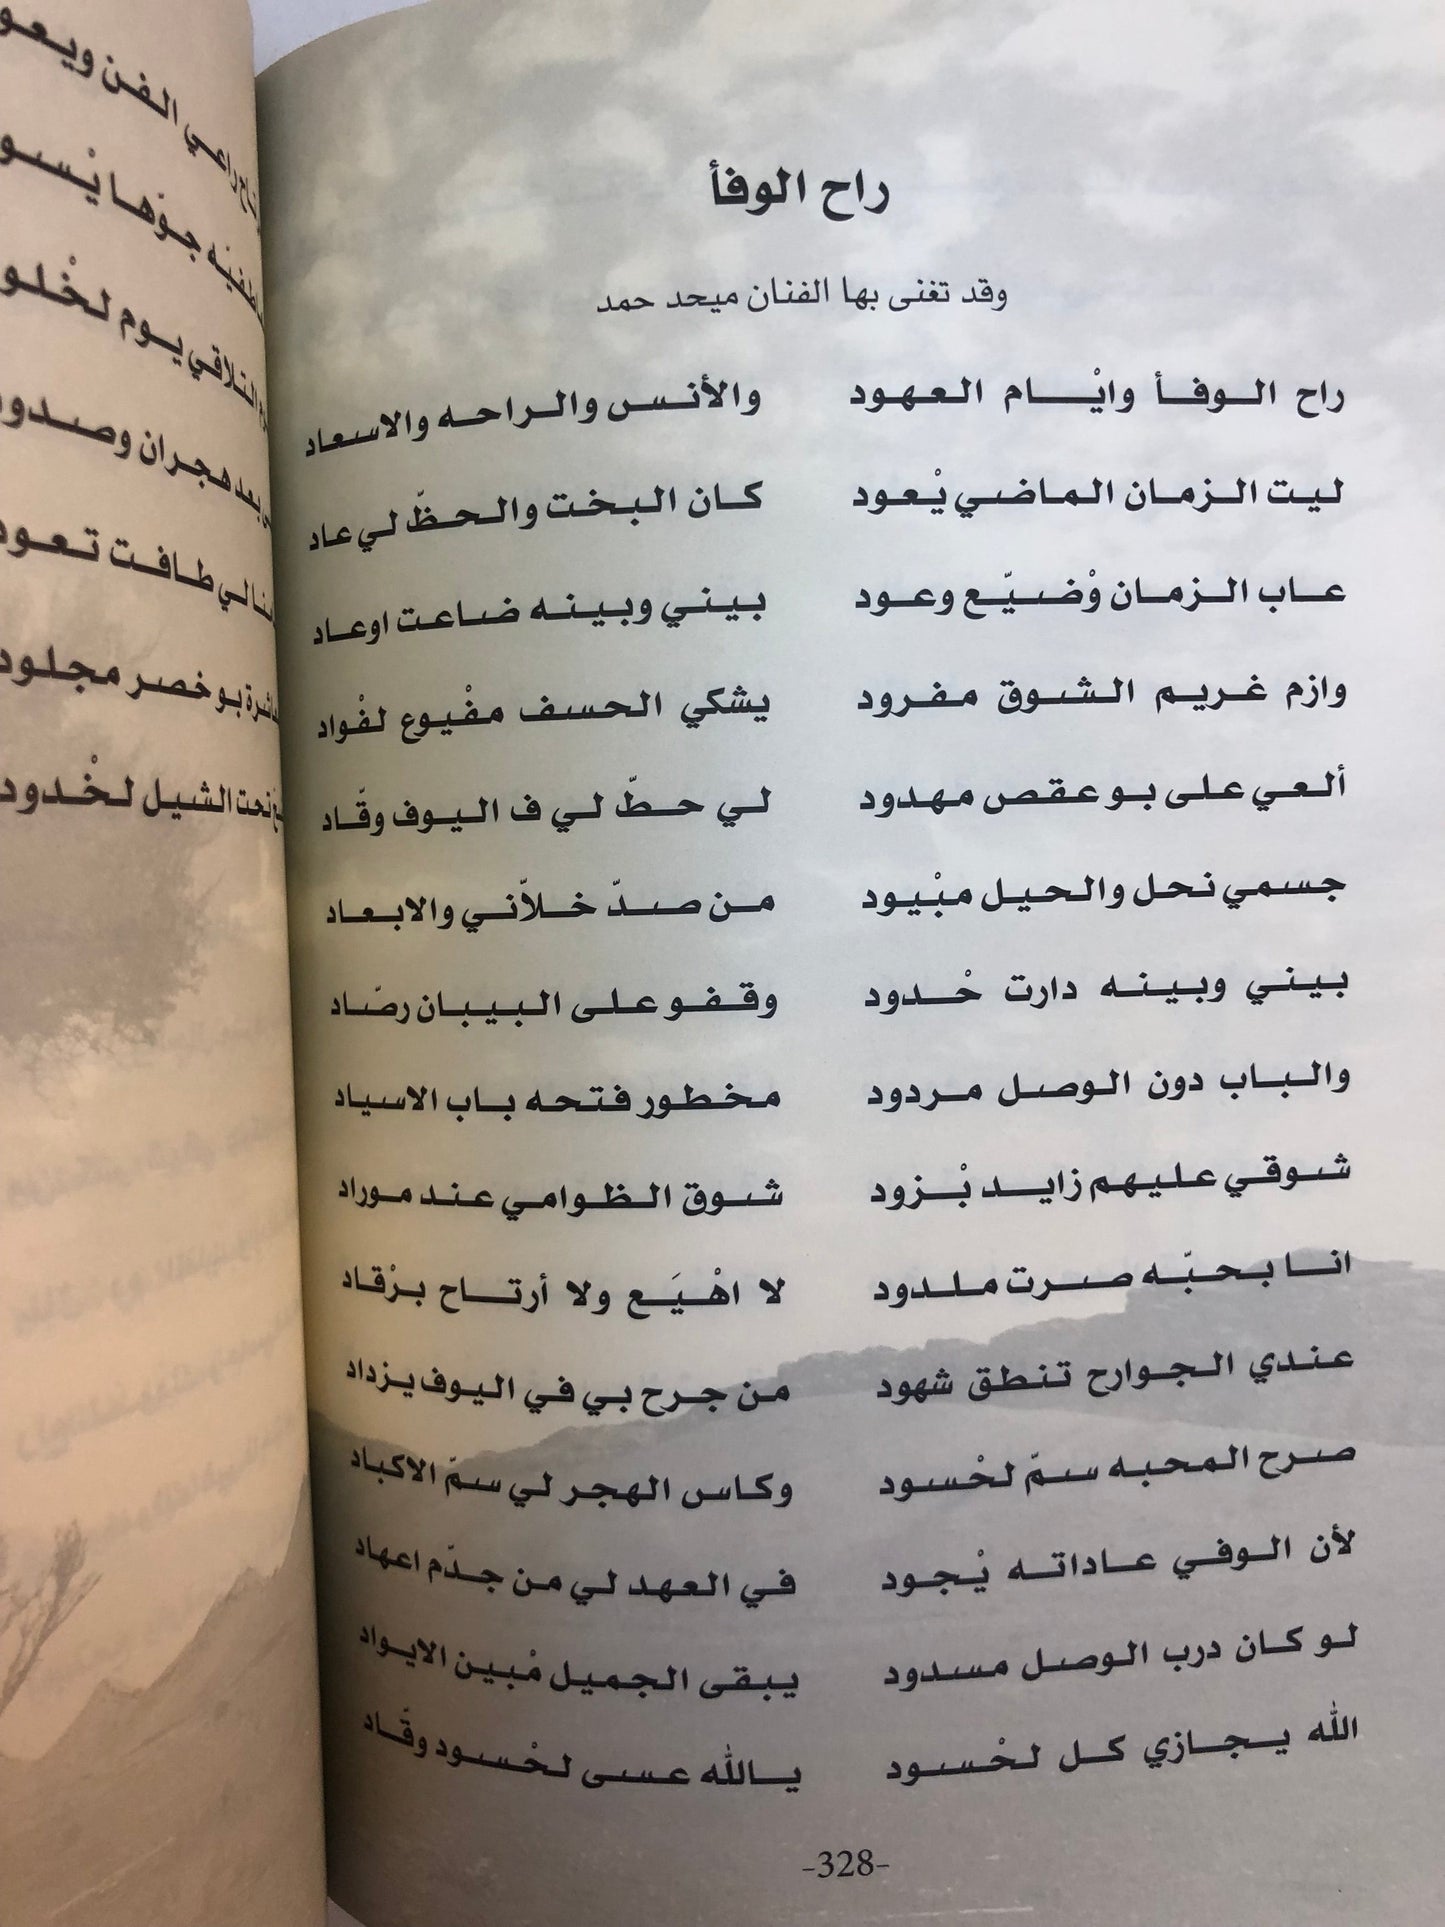 راح الوفأ
وقد تغنى بها الفنان ميحد حمد
راح الوفأ وايْام العهود والأنس والراحه والاسعاد
ليت الزمان الماضي يْعود كان البخت والحظّ لي عاد
عاب الزمان وْضيّع وعود بيني وبينه ضاعت اوعاد
وازم غريم الشوق مفرود يشكي الحسف مفْيوع لفْواد
ألعي على بو عقص مهدود لي حطّ لي ف اليوف وقّاد
جسمي نحل والحيل مبْيود من صدّ خلاّني والابعاد
بيني وبينه دارت حْدود وقفو على البيبان رصّاد
والباب دون الوصل مردود مخطور فتحه باب الاسياد
شوقي عليهم زايد بْزود شوق الظوامي عند موراد
انا بحبّه صرت ملدود لا اهْيَع ولا أرتاح برْقاد
عندي الجوارح تنطق شهود من جرح بي في اليوف يزداد
صرح المحبه سمّ لحْسود وكاس الهجر لي سمّ الاكباد
لأن الوفي عاداته يْجود في العهد لي من جدّم اعهاد
لو كان درب الوصل مسدود يبقى الجميل مْبين الايواد
الله يجازي كل لحْسود يالله عسى لحْسود وقّاد
-328-
الفن ويعو
جوّها يْسو
التلاقي يوم لخْلو
بعد هجران وصدو
طافت تعود
بو خصر مجلود
تحت الشيل لخْدود